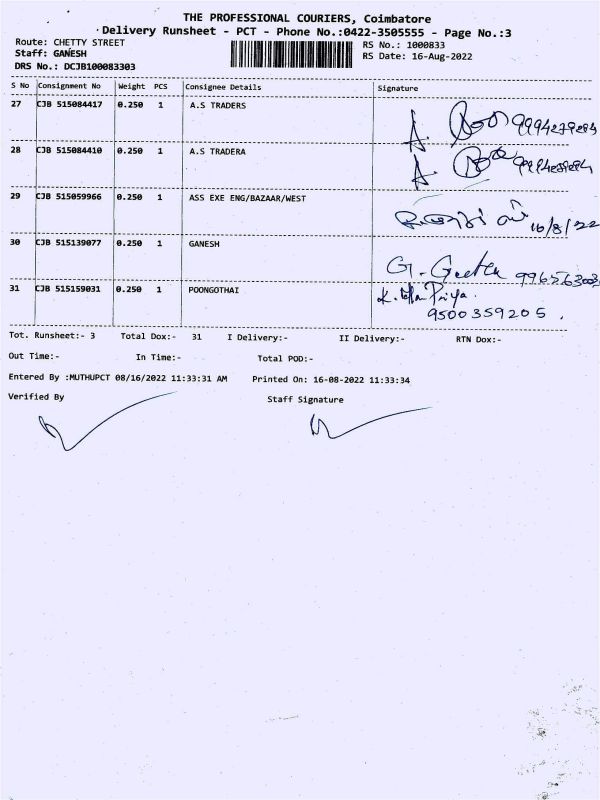 THE PROFESSIONAL COURIERS, Coimbatore
Delivery Runsheet - PCT - Phone No.:0422-3505555 - Page No.:3
Route: CHETTY STREET
RS No.: 1000833
Staff: GANESH
RS Date: 16-Aug-2022
DRS No.: DCJB100083303
S No Consignment No Weight PCS Consignee Details Signature
27 CJB 515084417 0.250 1 A.S TRADERS A.
28 CJB 515084410 0.250 1 A.S TRADERA A
29 CJB 515059966 0.250 1 ASS EXE ENG/BAZAAR/WEST 16/8/22
30 CJB 515139077 0.250 1 GANESH G. Geetha
31 CJB 515159031 0.250 1 POONGOTHAI K. Priya.
9500359205.
Tot. Runsheet:- 3 Total Dox:- 31 I Delivery:- II Delivery:- RTN Dox:-
Out Time:- In Time:- Total POD:-
Entered By :MUTHUPCT 08/16/2022 11:33:31 AM Printed On: 16-08-2022 11:33:34
Verified By Staff Signature